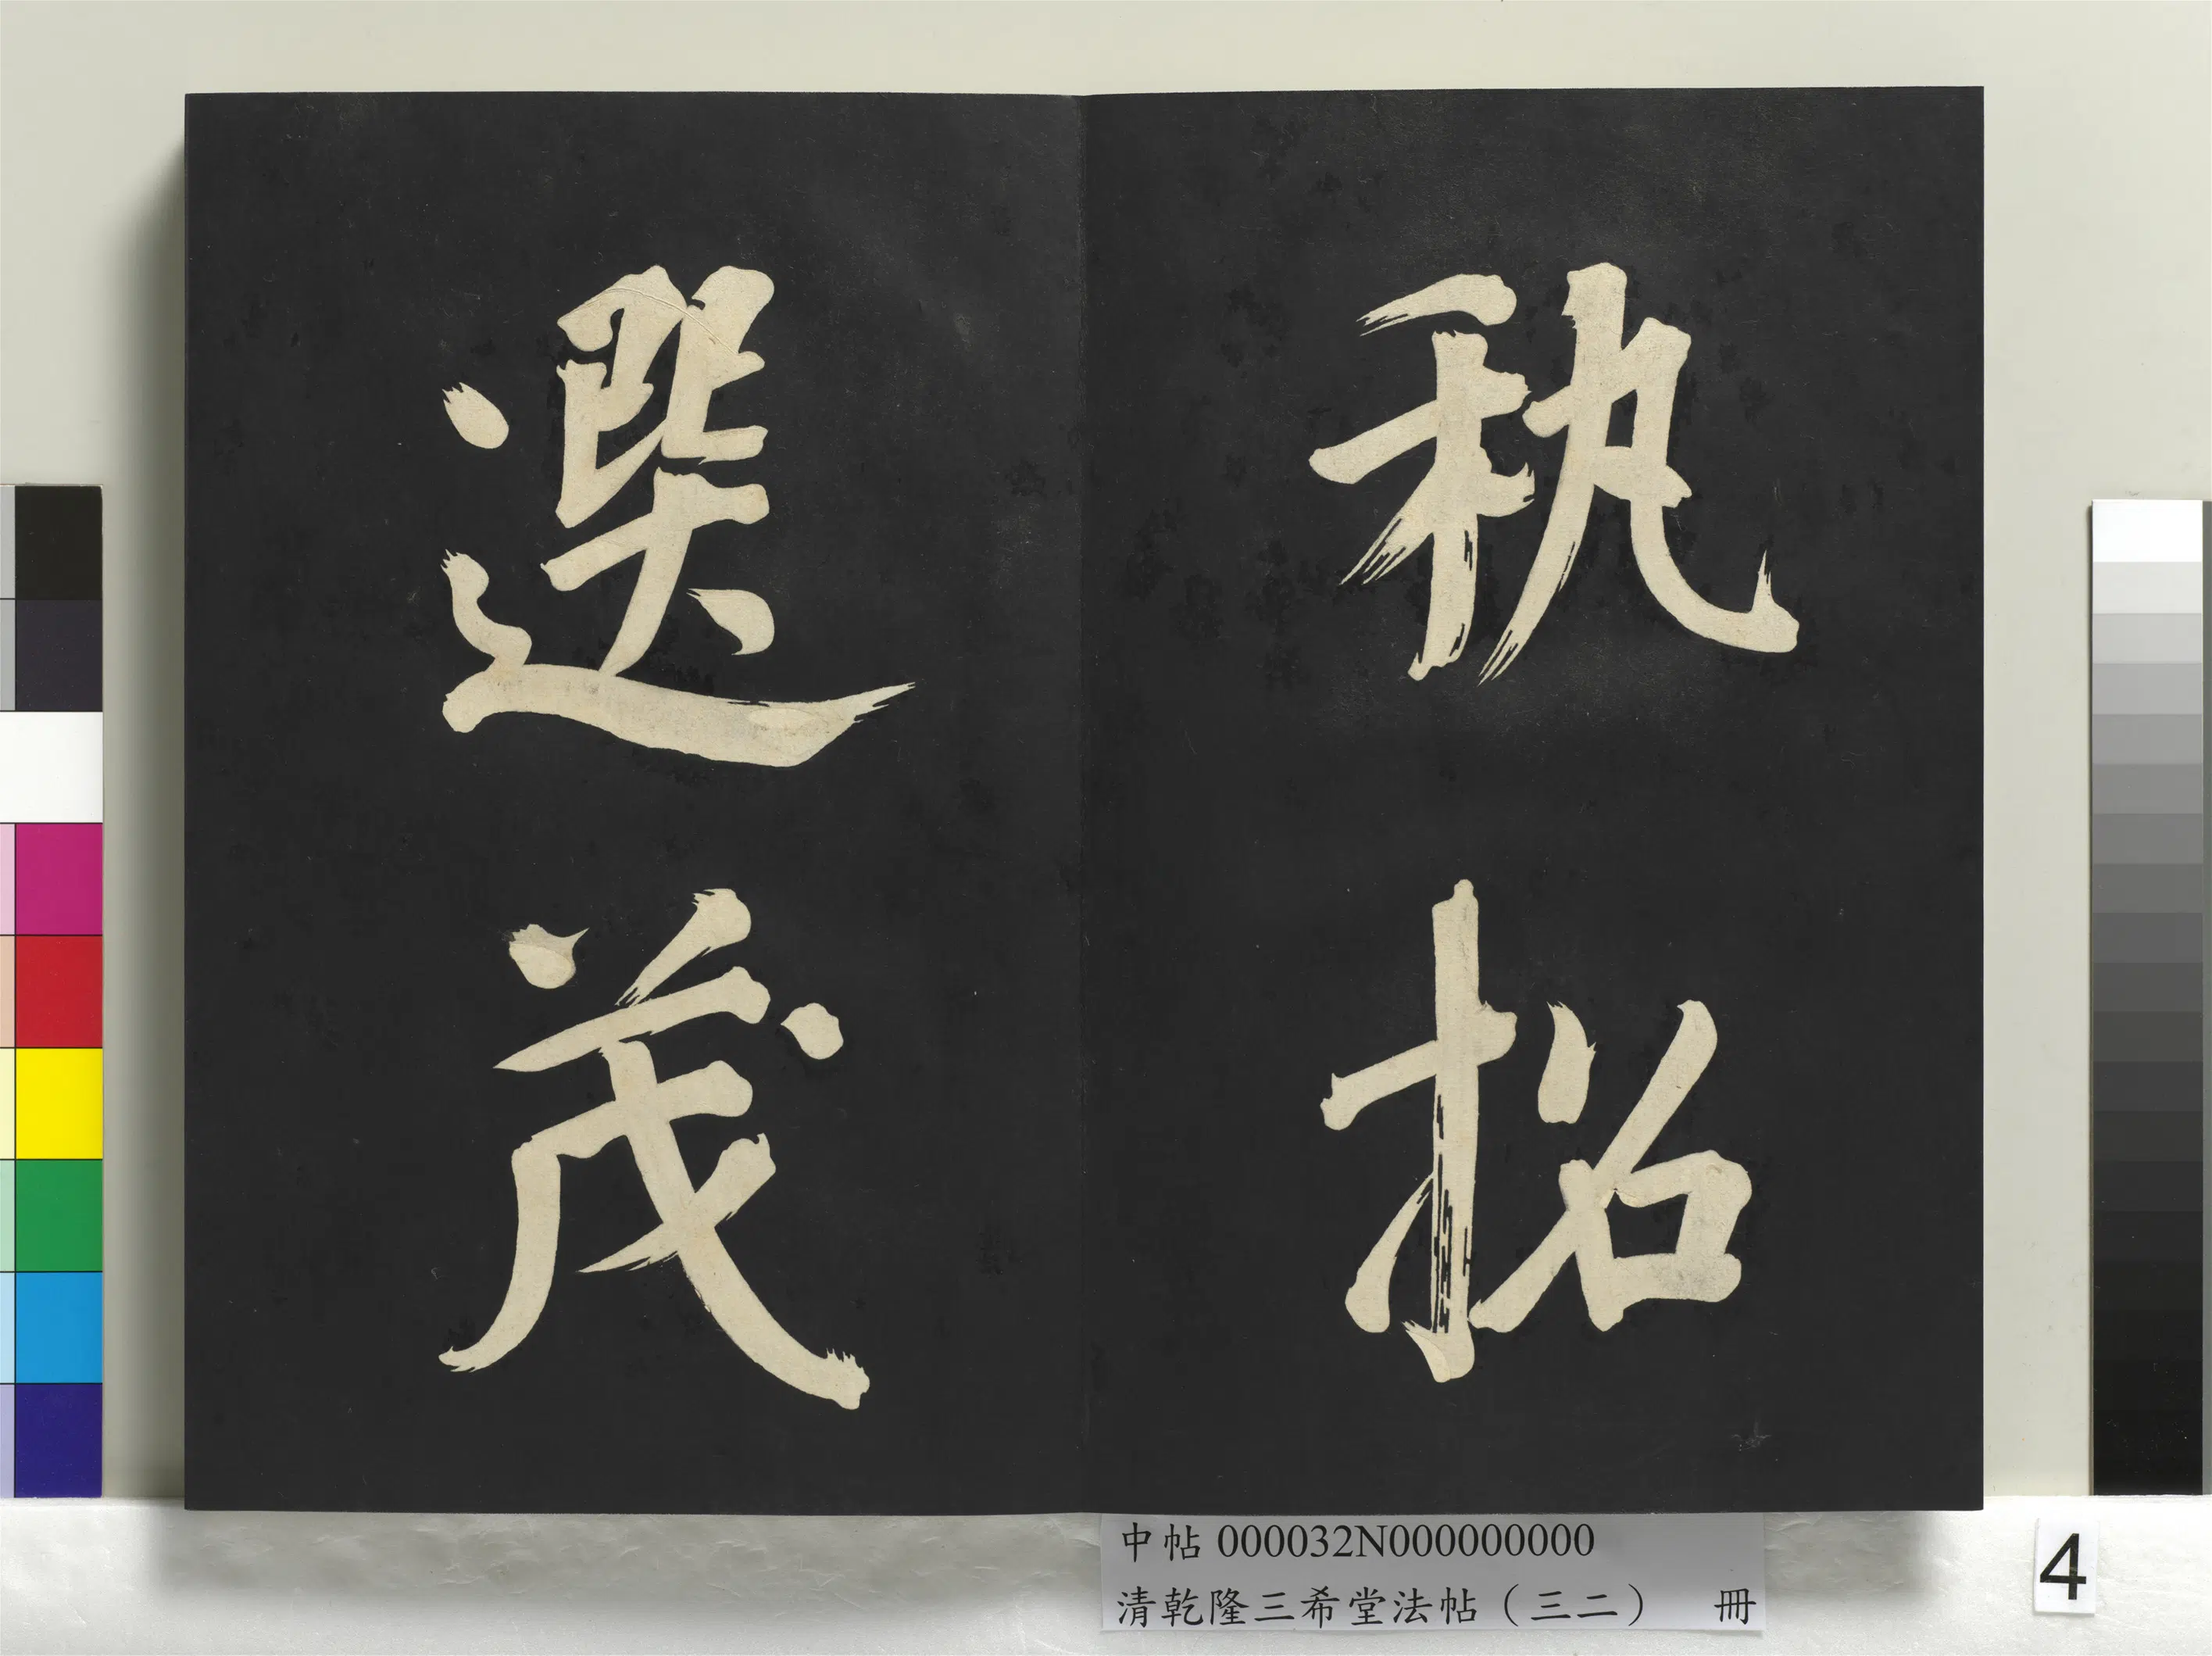 秇柗
選茂
中帖 000032N000000000
清乾隆三希堂法帖（三二） 冊
4